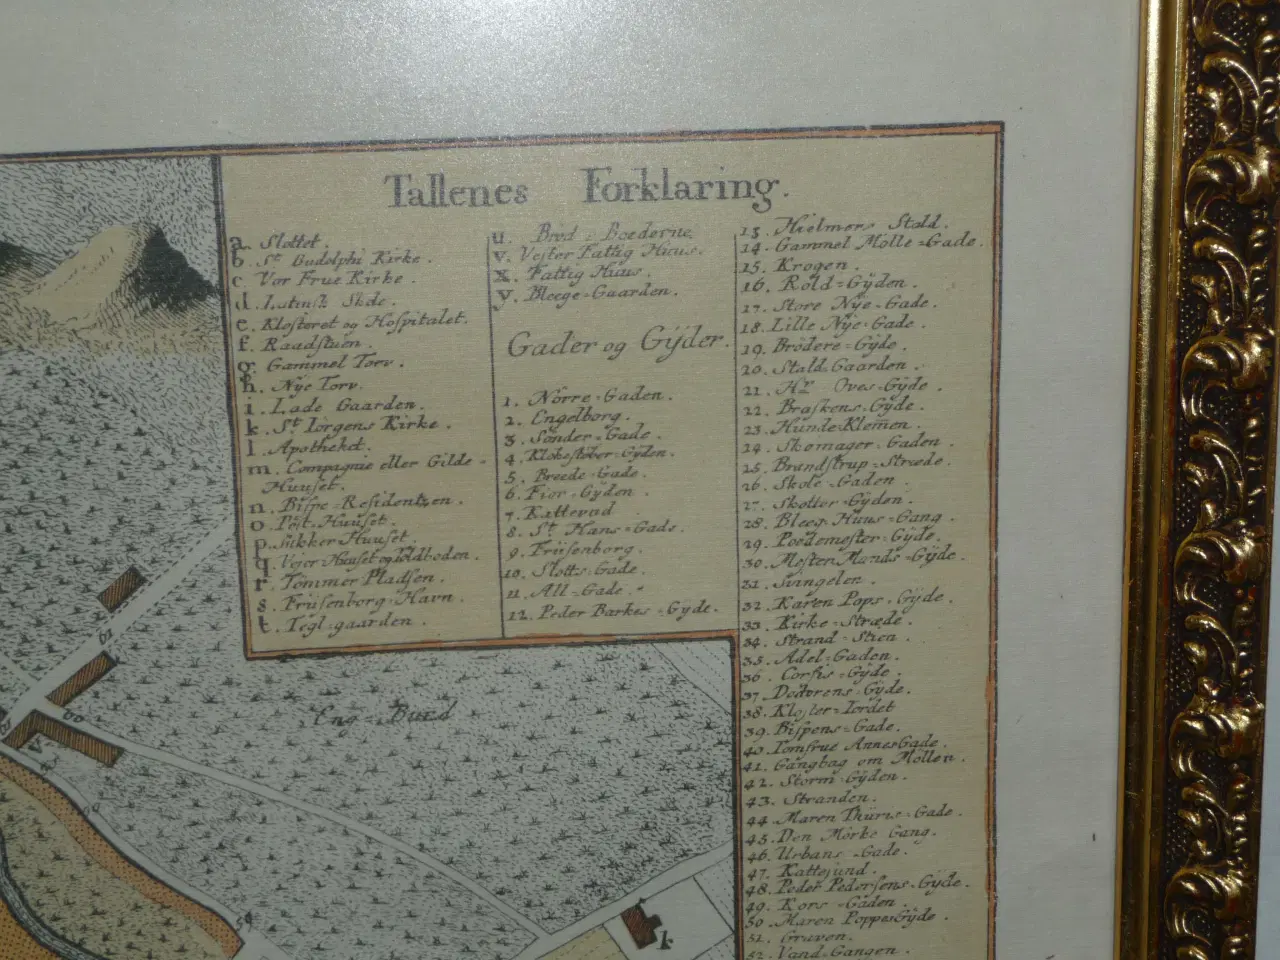 Tallenes Forklaring.
a. Slottet.
b. St. Budolphi Kirke.
c. Vor Frue Kirke.
d. Latinsk Skole.
e. Klosteret og Hospitalet.
f. Raadstuen.
g. Gammel Torv.
h. Nÿe Torv.
i. Lade Gaarden.
k. St. Iörgens Kirke.
l. Apotheket.
m. Compagnie eller Gilde-
Huuset.
n. Bispe-Residentzen.
o. Post-Huuset.
p. Sukker Huuset.
q. Vejer Huuset og Toldboden.
r. Tömmer Pladsen.
s. Friisenborg-Havn.
t. Tegl-gaarden.
u. Bröd-Boederne.
v. Vester Fattig Huus.
x. Fattig Huus.
y. Bleege-Gaarden.
Gader og Gÿder.
1. Nörre-Gaden.
2. Engelborg.
3. Sönder-Gade.
4. Klokestöber-Gÿden.
5. Breede-Gade.
6. Fior-Gÿden.
7. Kattesud
8. St. Hans-Gade.
9. Friisenborg.
10. Slotts-Gade.
11. All-Gade.
12. Peder Barkes-Gÿde.
13. Hielmers Stald.
14. Gammel Mölle-Gade.
15. Krogen.
16. Rold-Gÿden.
17. Store Nÿe-Gade.
18. Lille Nÿe-Gade.
19. Brödere-Gÿde.
20. Stald-Gaarden.
21. Hr. Oves-Gÿde.
22. Braskens-Gÿde.
23. Hunde-Klemen.
24. Skomager-Gaden.
25. Brandstrup-Stræde.
26. Skole-Gaden.
27. Skotter-Gÿden.
28. Bleeg Huus-Gang.
29. Poedemester-Gÿde.
30. Mester Mands-Gÿde.
31. Svingelen.
32. Karen Pops-Gÿde.
33. Kirke-Stræde.
34. Strand-Stien.
35. Adel-Gaden.
36. Corfis-Gÿde.
37. Doderens Gÿde.
38. Kloster-Iordet
39. Bispens-Gade.
40. Iomfrue Annes Gade.
41. Gangbag om Möllen.
42. Storm-Gÿden.
43. Stranden.
44. Maren Thüris-Gade.
45. Den Mörke Gang.
46. Urbans-Gade.
47. Kattesund.
48. Peder Pedersens-Gÿde.
49. Kors-Gaden.
50. Maren Poppes Gÿde.
51. Graven.
52. Vand-Gangen.
Eng-Bund
k